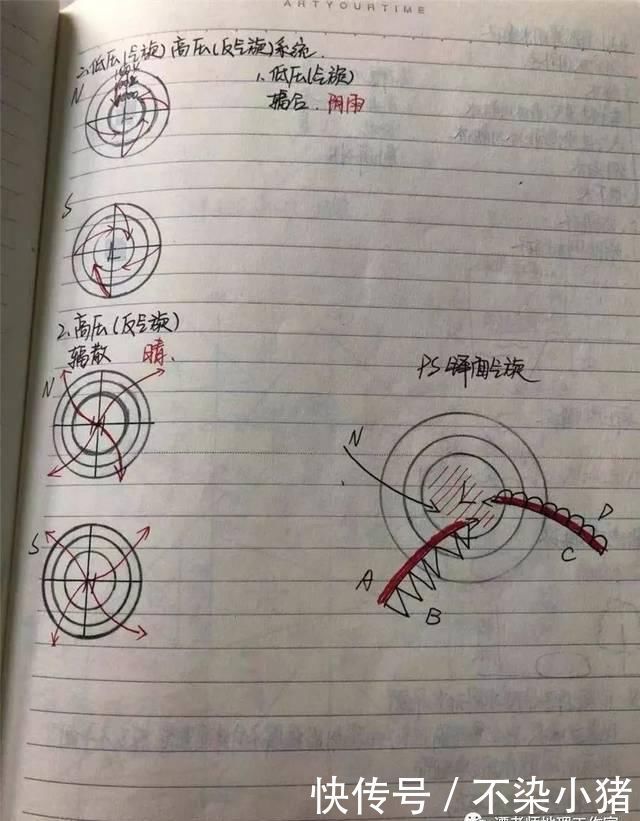 ARTYOURTIME
2、低压(气旋)高压(反气旋)系统.
1、低压(气旋)
辐合. 阴雨
N
L
S
L
2、高压(反气旋)
辐散 晴.
N
H
S
H
PS 锋面气旋
N
L
A
B
C
D
快传号 / 不染小猪